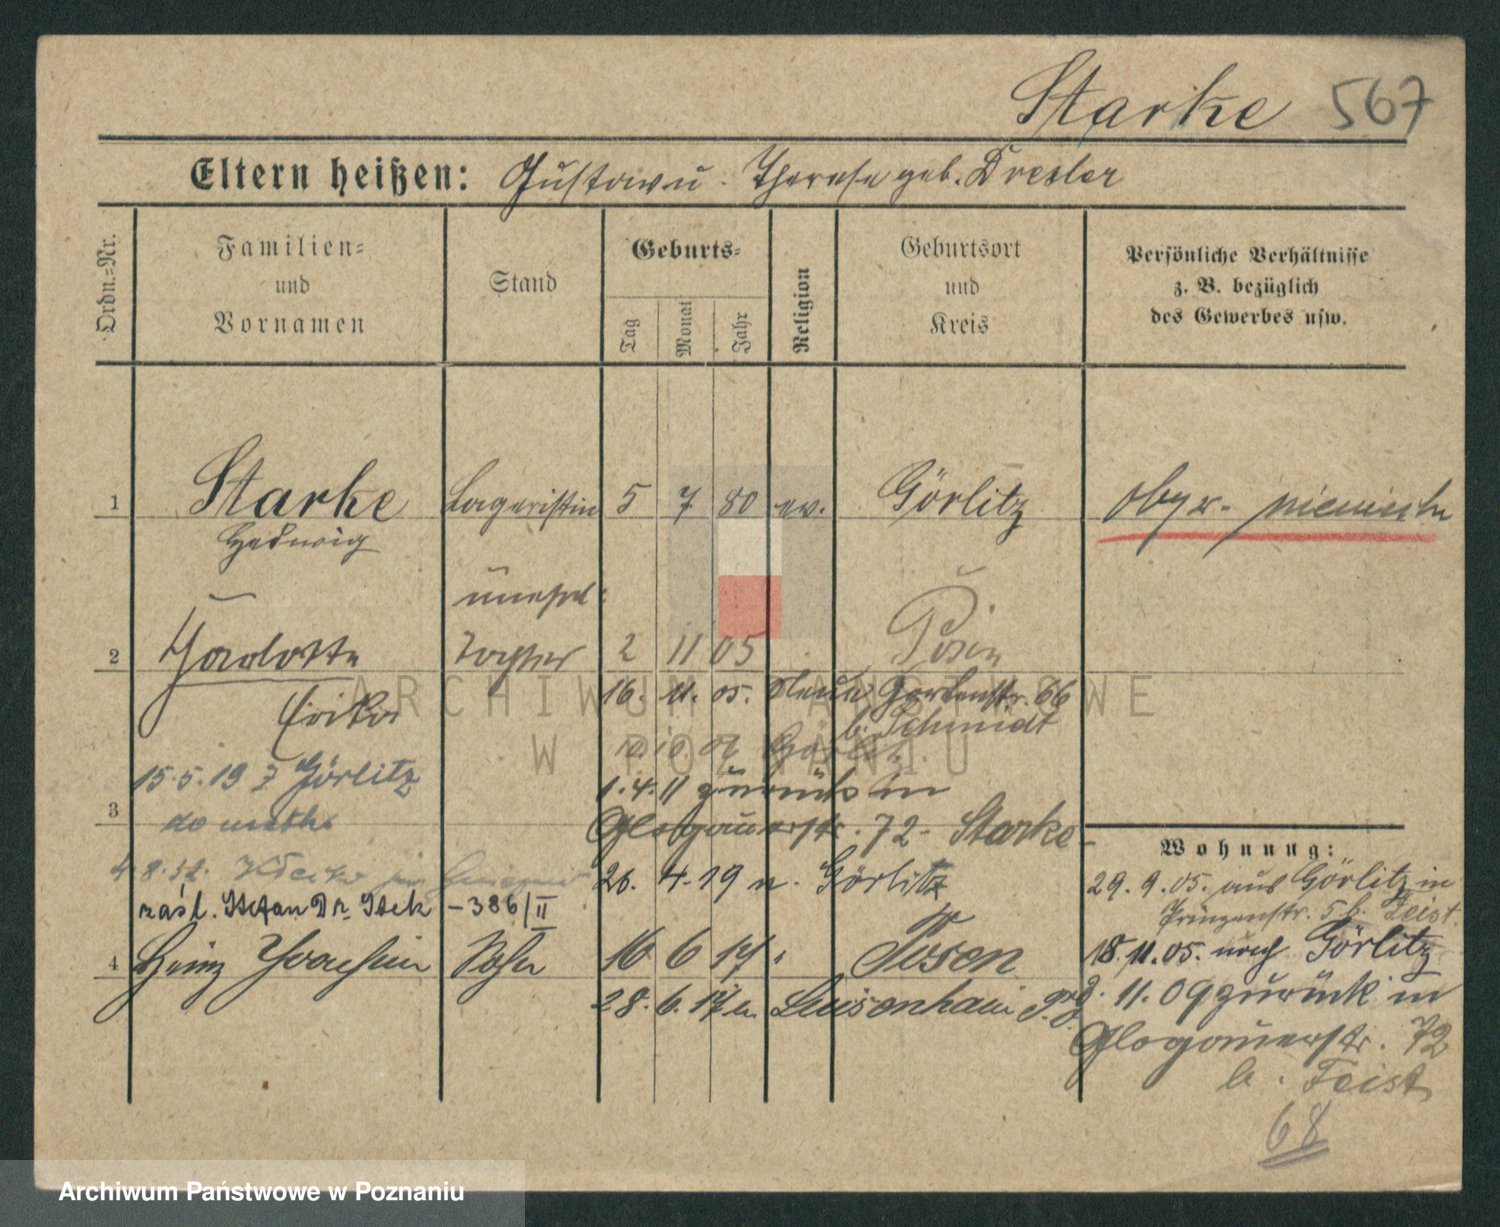 Starke 567
Eltern heißen: Gustav u. Therese geb. Dresler
Ordn.=Nr.
Familien=
und
Vornamen
Stand
Geburts=
Tag
Monat
Jahr
Religion
Geburtsort
und
Kreis
Persönliche Verhältnisse
z. B. bezüglich
des Gewerbes usw.
1 Starke Lageristin 5 7 80 ev. Görlitz obyw. niemiecka
Hedwig
unehel.
2 Charlotte Tochter 2 11 05 Posen
Erika
16. 11. 05. Neue Gartenstr. 66
b. Schmidt
15.5.19 Görlitz
1.4.11 zurück in
3
Glogauerstr. 72 - Starke -
26. 4. 19 n. Görlitz
zaśl. Stefan Dr. - 386/II
4 Heinz Joachim Sohn 16 6 17 Posen
28. 6. 17 n. Luisenhain
Wohnung:
29. 9. 05. aus Görlitz in
Prinzenstr. 5 b. Feist
18. 11. 05. nach Görlitz
11. 09 zurück in
Glogauerstr. 72
b. Feist
68
ARCHIWUM PAŃSTWOWE
W POZNANIU
Archiwum Państwowe w Poznaniu